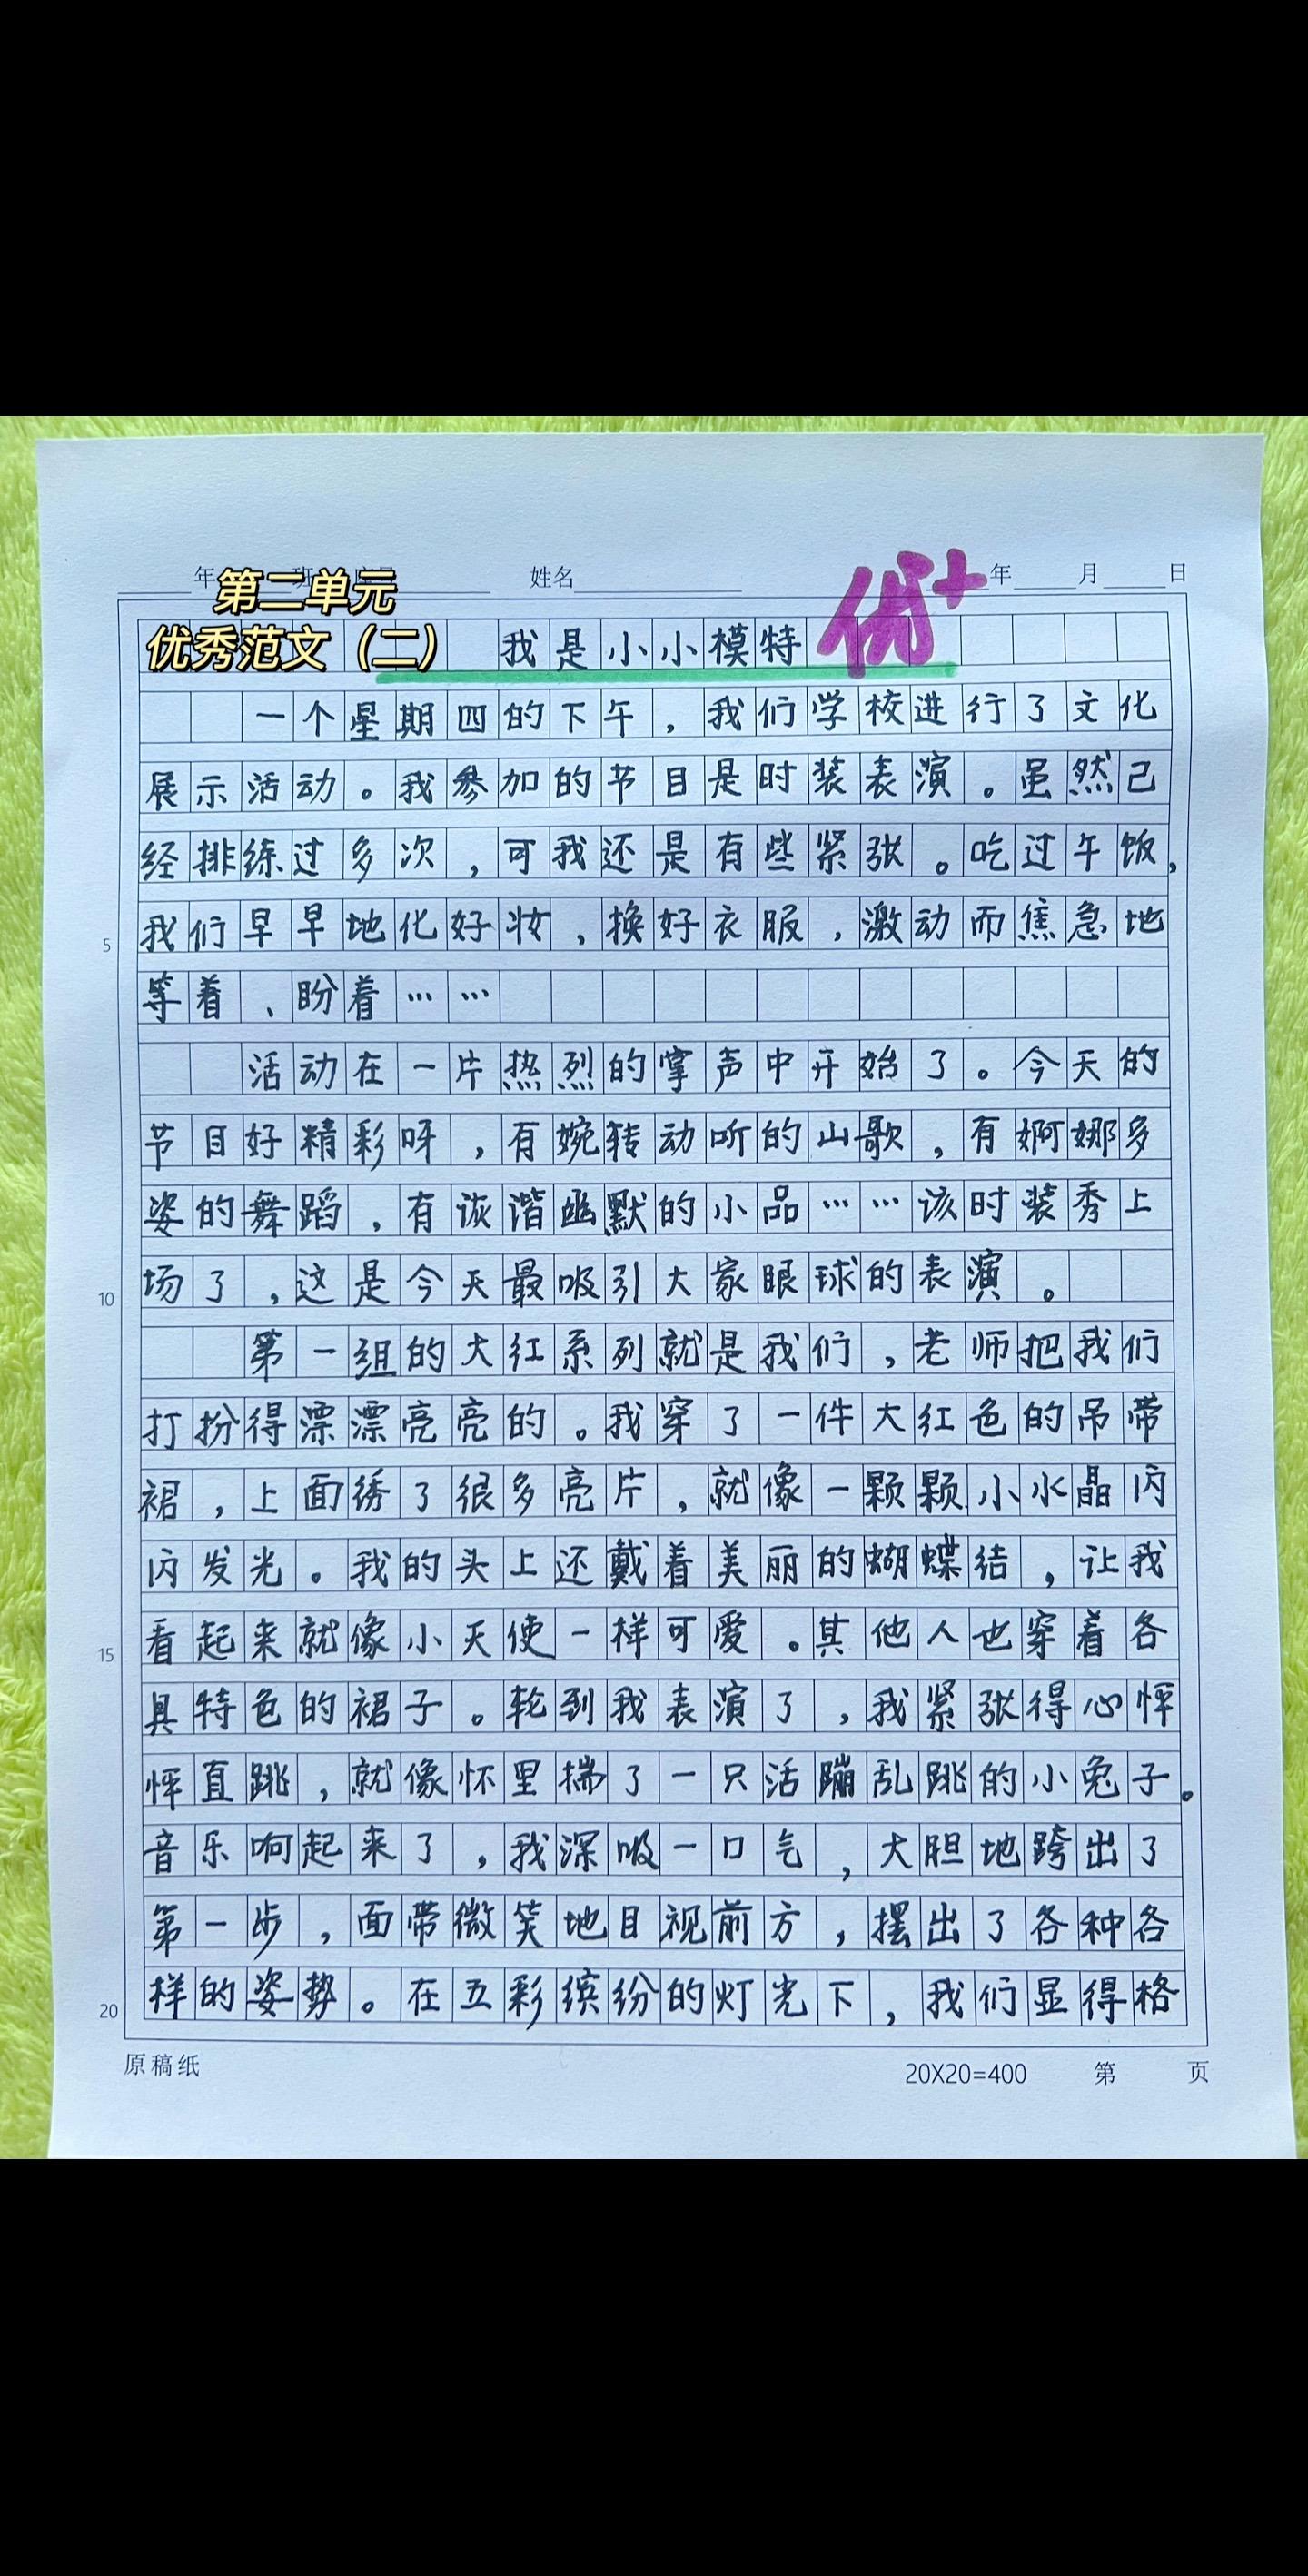 年 班 姓名 年 月 日
第二单元
优秀范文（二）
优+
我是小小模特
一个星期四的下午，我们学校进行了文化
展示活动。我参加的节目是时装表演。虽然已
经排练过多次，可我还是有些紧张。吃过午饭，
我们早早地化好妆，换好衣服，激动而焦急地
5
等着、盼着……
活动在一片热烈的掌声中开始了。今天的
节目好精彩呀，有婉转动听的山歌，有婀娜多
姿的舞蹈，有诙谐幽默的小品……该时装秀上
场了，这是今天最吸引大家眼球的表演。
10
第一组的大红系列就是我们，老师把我们
打扮得漂漂亮亮的。我穿了一件大红色的吊带
裙，上面绣了很多亮片，就像一颗颗小水晶闪
闪发光。我的头上还戴着美丽的蝴蝶结，让我
看起来就像小天使一样可爱。其他人也穿着各
15
具特色的裙子。轮到我表演了，我紧张得心怦
怦直跳，就像怀里揣了一只活蹦乱跳的小兔子。
音乐响起来了，我深吸一口气，大胆地跨出了
第一步，面带微笑地目视前方，摆出了各种各
样的姿势。在五彩缤纷的灯光下，我们显得格
20
原稿纸 20X20=400 第 页